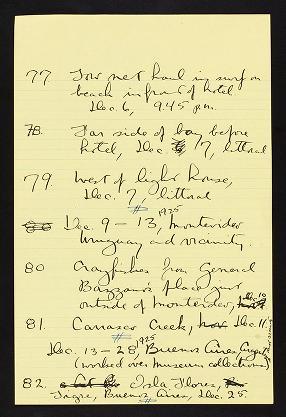 77 Tow net haul in surf on
beach in front of hotel
Dec. 6, 9 45 p.m.
78. Far side of bay before
hotel, Dec 7, littoral
79. West of light house,
Dec. 7 littoral
#
1925
Dec. 9 - 13, Montevideo
Uruguay and vicinity.
80 Crayfishes from General
Bazzano's place just
outside of Montevideo, Dec. 10
81. Carrasco Creek, Dec. 11.
#
1925
Dec. 13 - 28, Buenos Aires,
(worked over museum collections)
82. Isla Flores,
Tigre, Buenos Aires, Dec. 25.
#